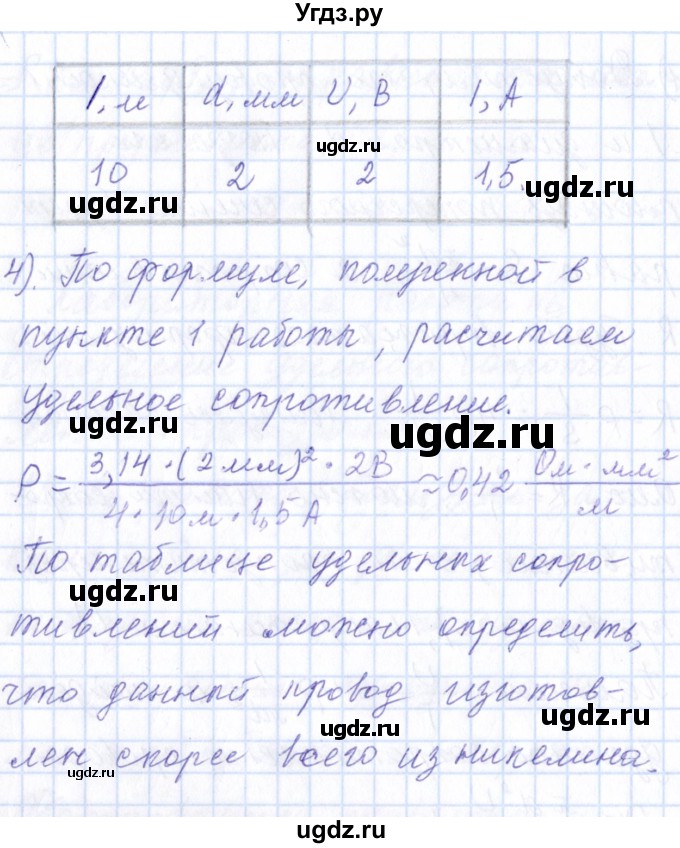 Угдз.ру
l, м d, мм U, В I, А
10 2 2 1,5
ugdz.ru
ugdz.ru
ugdz.ru
4). По формуле, полученной в
пункте 1 работы, расчитаем
удельное сопротивление.
ugdz.ru
ugdz.ru
ρ = 3,14·(2мм)²·2В / 4·10м·1,5А ≈ 0,42 Ом·мм²/м
По таблице удельных сопро-
ugdz.ru
тивлений можно определить,
что данный провод изготов-
ugdz.ru
ugdz.ru
лен скорее всего из никелина.
ugdz.ru
ugdz.ru